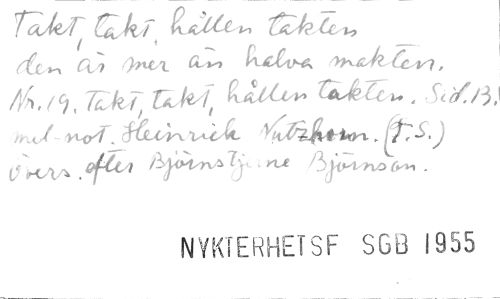 Takt, takt, hållen takten
den är mer än halva makten.
Nr. 19. Takt, takt, hållen takten. Sid. 13.
mel-not. Heinrich Nutzhorn. (T.S.)
övers. efter Björnstjerne Björnson.
NYKTERHETSF SGB 1955